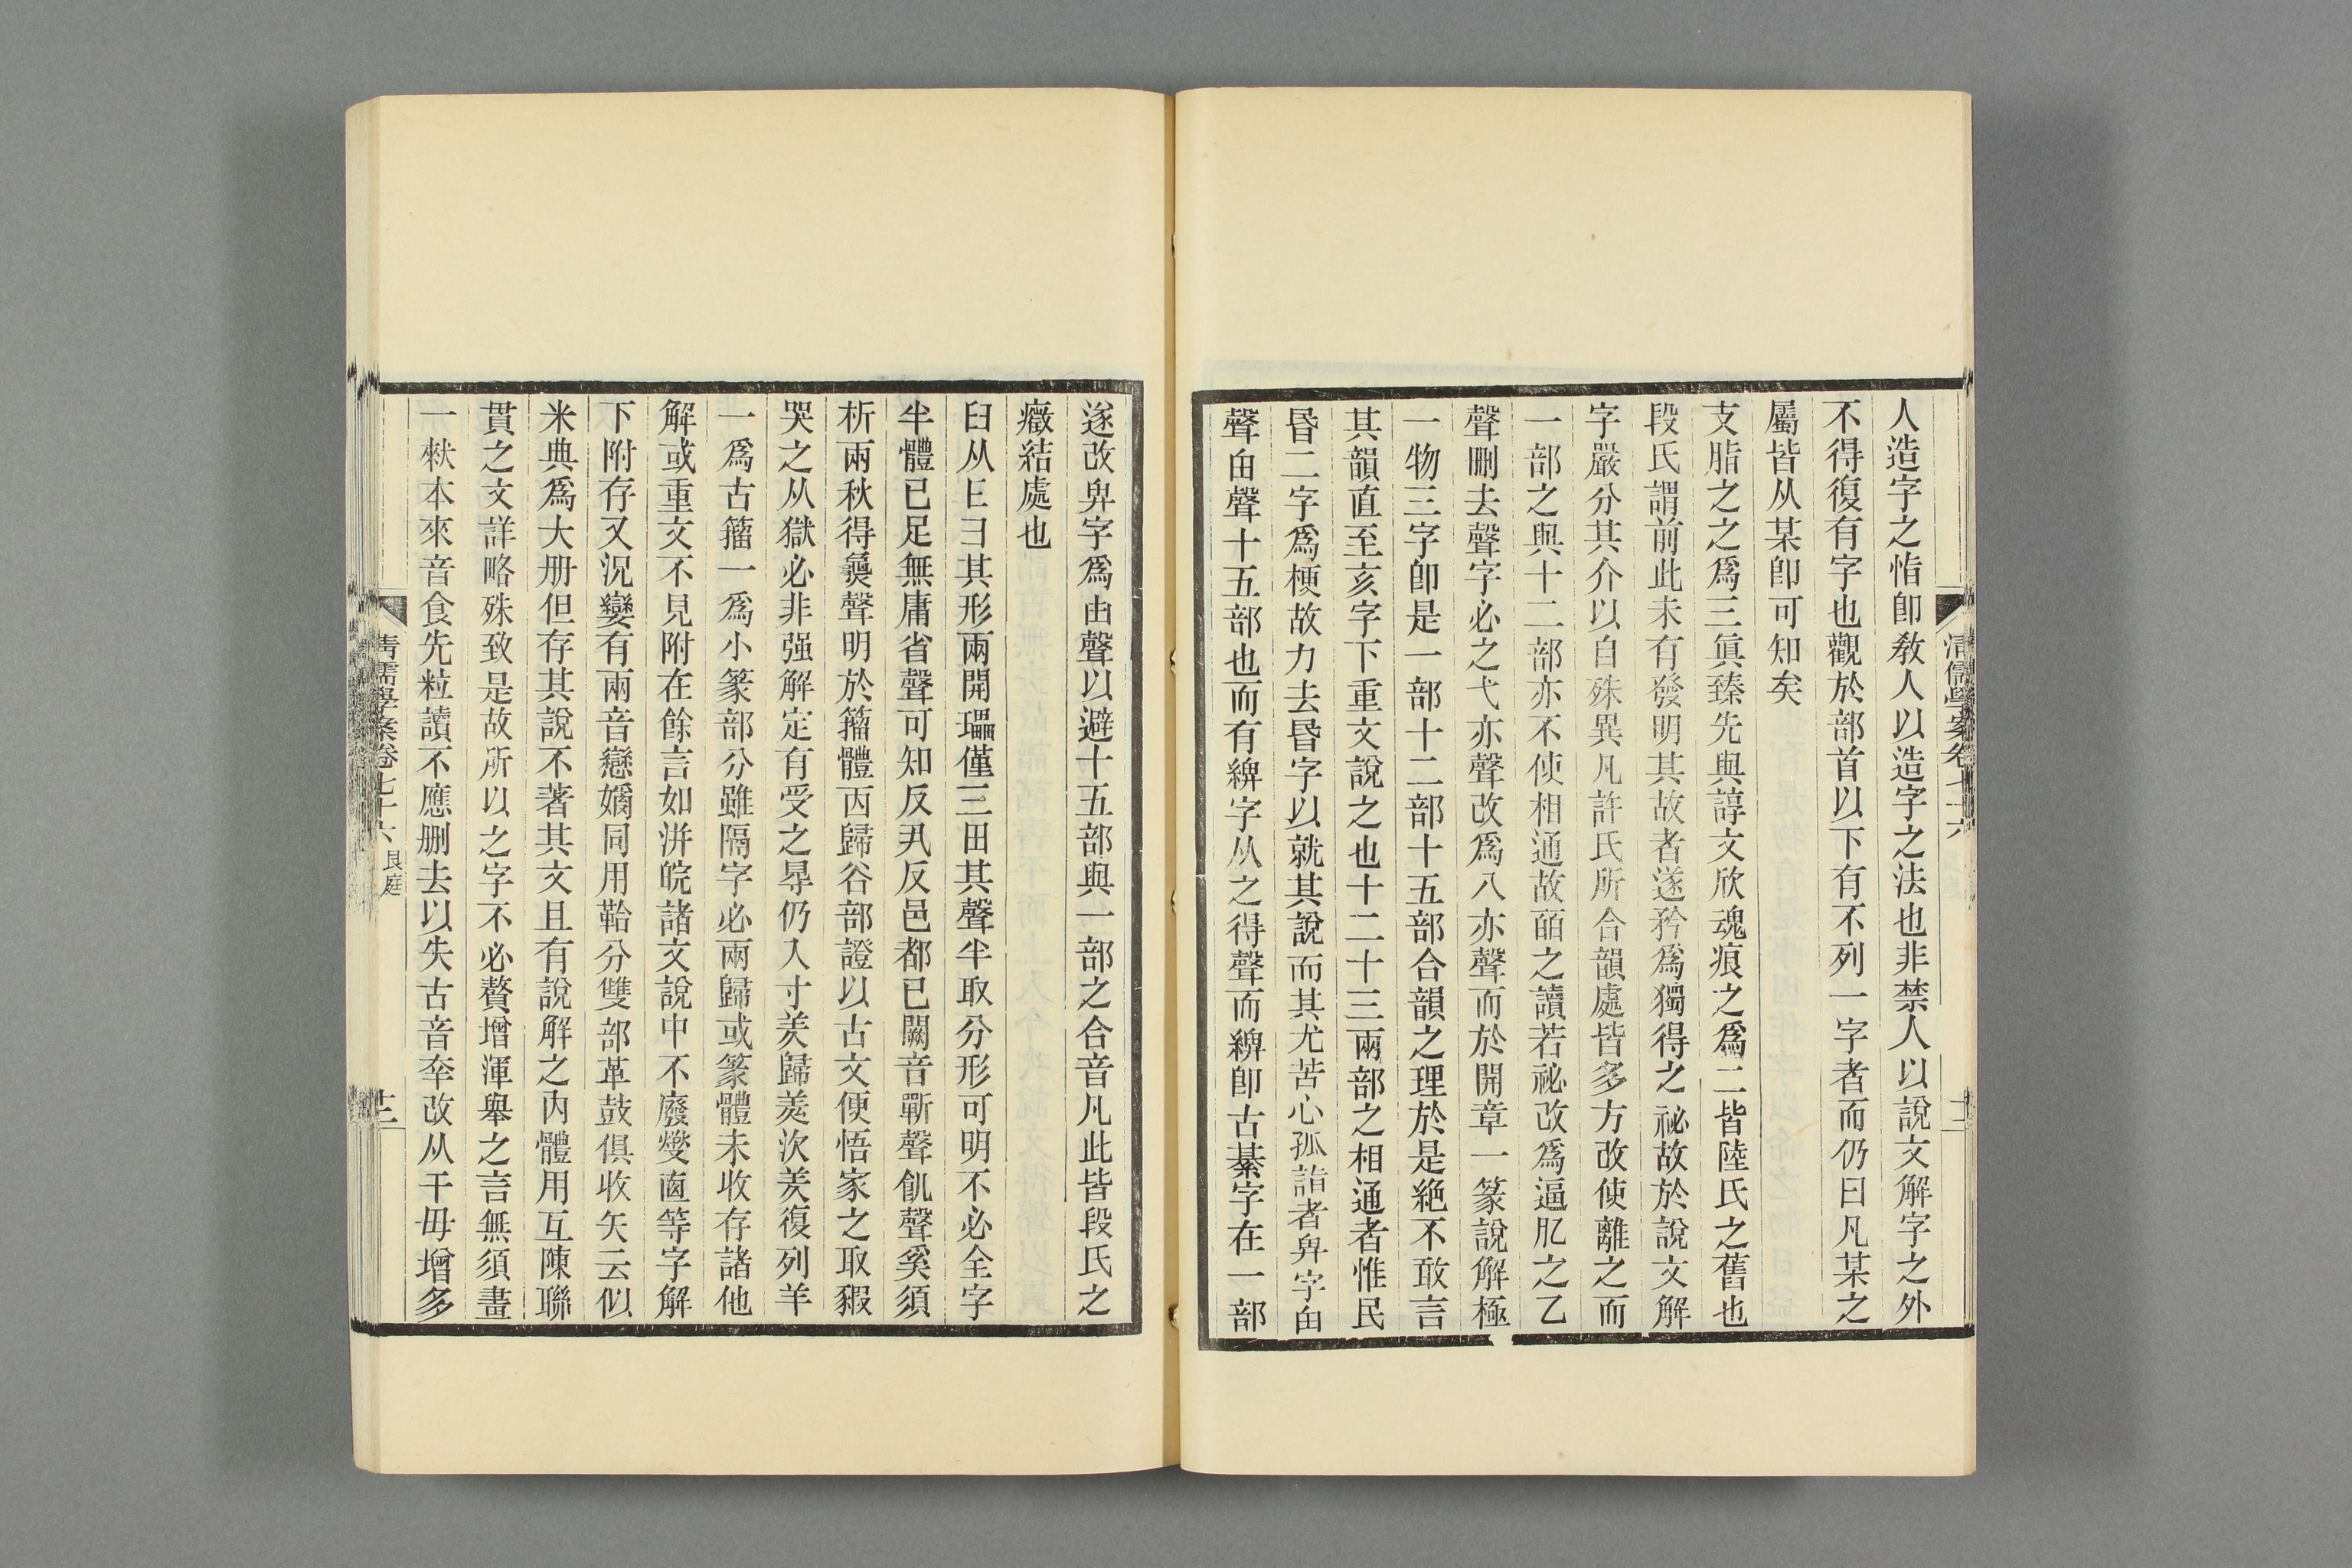 清儒學案卷七十六
人造字之恉卽敎人以造字之法也非禁人以說文解字之外
不得復有字也觀於部首以下有不列一字者而仍曰凡某之
屬皆从某卽可知矣
支脂之之爲三眞臻先與諄文欣魂痕之爲二皆陸氏之舊也
段氏謂前此未有發明其故者遂矜爲獨得之祕故於說文解
字嚴分其介以自殊異凡許氏所合韻處皆多方改使離之而
一部之與十二部亦不使相通故皕之讀若祕改爲逼肊之乙
聲刪去聲字必之弋亦聲改爲八亦聲而於開章一篆說解極
一物三字卽是一部十二部十五部合韻之理於是絕不敢言
其韻直至亥字下重文說之也十二十三兩部之相通者惟民
昬二字爲梗故力去昬字以就其說而其尤苦心孤詣者畀字甶
聲甶聲十五部也而有綥字从之得聲而綥卽古綦字在一部
遂改畀字爲甶聲以避十五部與一部之合音凡此皆段氏之
癥結處也
臼从𠂇彐其形兩開瓃僅三田其聲半取分形可明不必全字
半體已足無庸省聲可知反爪反邑都已闕音斷聲飢聲奚須
析兩秋得㷼聲明於籀體丙歸谷部證以古文便悟家之取豭
哭之从獄必非强解定有受之㝵仍入寸𦍌歸羑次羑復列羊
一爲古籀一爲小篆部分雖隔字必兩歸或篆體未收存諸他
解或重文不見附在餘言如洴皖諸文說中不廢燮𠧪等字解
下附存又況孌有兩音戀嫡同用鞈分雙部革鼓俱收矢云似
米典爲大册但存其說不著其文且有說解之內體用互陳聯
貫之文詳略殊致是故所以之字不必贅增渾舉之言無須畫
一𣏟本來音食先粒讀不應刪去以失古音𡴘改从干毋增多
清儒學案卷七十六 艮庭